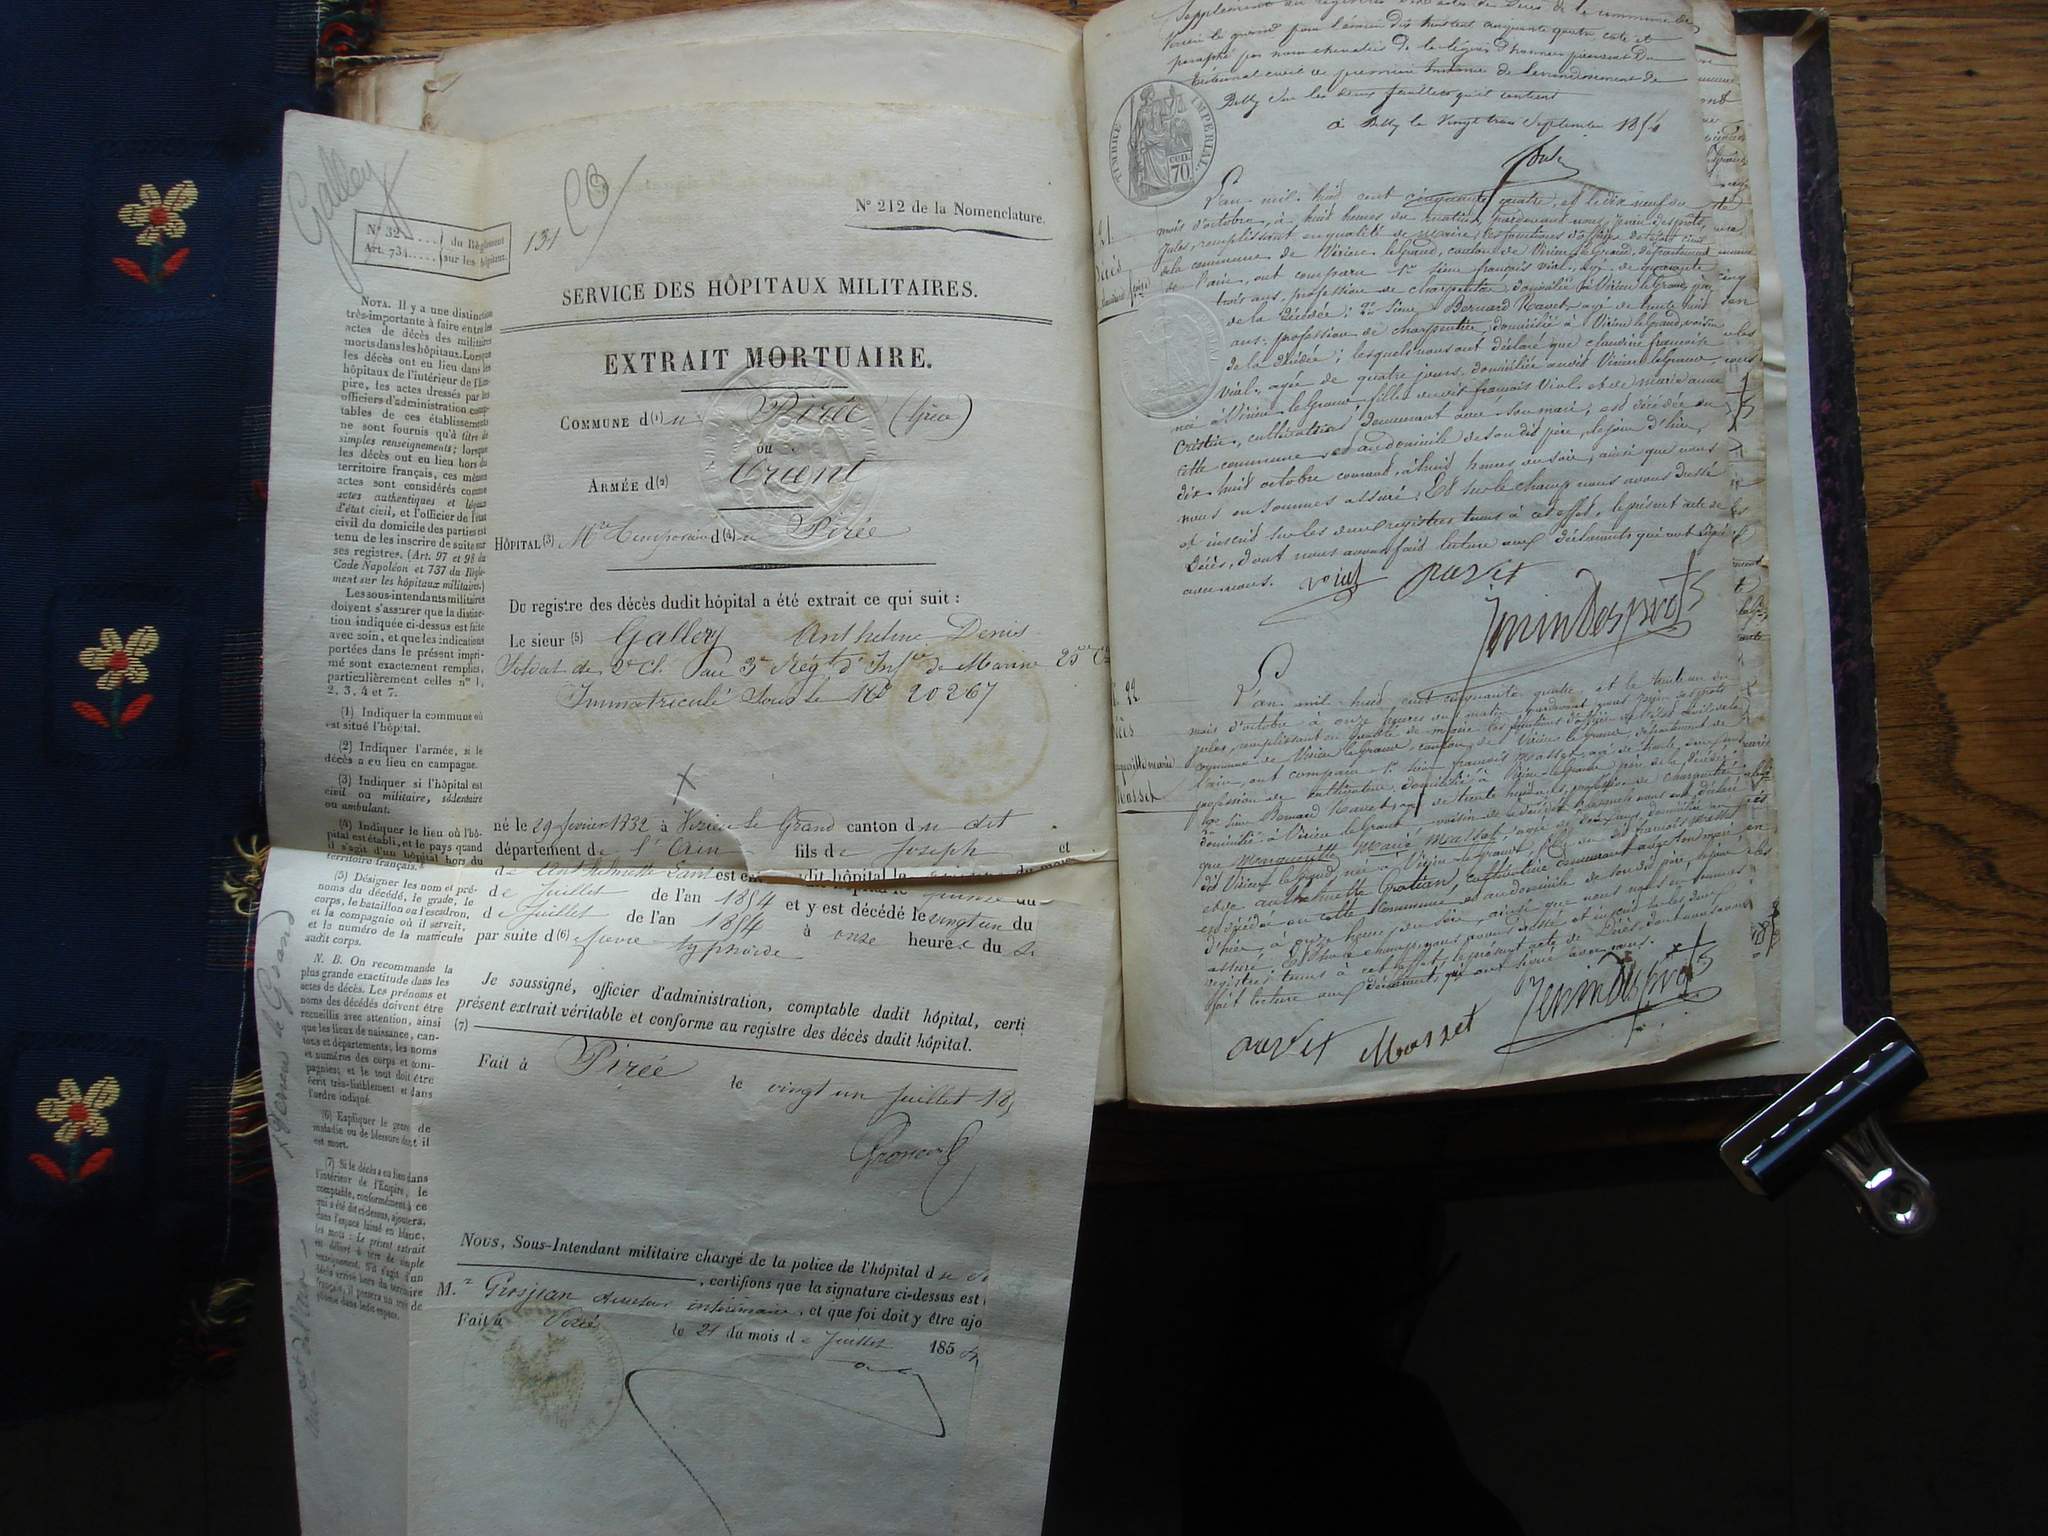 Galley
131
N° 212 de la Nomenclature.
N° 32..... du Règlement
Art. 734..... sur les hôpitaux.
SERVICE DES HÔPITAUX MILITAIRES.
EXTRAIT MORTUAIRE.
COMMUNE d(1) u Pirée (Grèce)
ou
ARMÉE d(2) Orient
HÔPITAL (3) Mre temporaire d(4) u Pirée
Du registre des décès dudit hôpital a été extrait ce qui suit :
Le sieur (5) Galley Anthelme Denis
Soldat de 2e Cl. au 3e Régt d'Infie de Marine 25me Cie
Immatriculé sous le No 20267
né le 29 fevrier 1832 à Virieu le Grand canton du dit
département de l'Ain fils de Joseph et
de est entré dudit hôpital le
de Juillet de l'an 1854 et y est décédé le vingt un du
de Juillet de l'an 1854 à onze heures du
par suite d(6) fievre typhoïde
Je soussigné, officier d'administration, comptable dudit hôpital, certi
présent extrait véritable et conforme au registre des décès dudit hôpital.
(7)
Fait à Pirée
le vingt un Juillet 18
Nous, Sous-Intendant militaire chargé de la police de l'hôpital d
, certifions que la signature ci-dessus est
M. Grosjean directeur intérimaire, et que foi doit y être ajo
Fait à Pirée
le 21 du mois de Juillet 1854
NOTA. Il y a une distinction
très-importante à faire entre les
actes de décès des militaires
morts dans les hôpitaux. Lorsque
les décès ont eu lieu dans les
hôpitaux de l'intérieur de l'Em-
pire, les actes dressés par les
officiers d'administration comp-
tables de ces établissements
ne sont fournis qu'à titre de
simples renseignements; lorsque
les décès ont eu lieu hors du
territoire français, ces mêmes
actes sont considérés comme
actes authentiques et légaux
d'état civil, et l'officier de l'état
civil du domicile des parties est
tenu de les inscrire de suite sur
ses registres. (Art. 97 et 98 du
Code Napoléon et 737 du Règle-
ment sur les hôpitaux militaires.)
Les sous-intendants militaires
doivent s'assurer que la distinc-
tion indiquée ci-dessus est faite
avec soin, et que les indications
portées dans le présent impri-
mé sont exactement remplies,
particulièrement celles nos 1,
2, 3, 4 et 7.
(1) Indiquer la commune où
est situé l'hôpital.
(2) Indiquer l'armée, si le
décès a eu lieu en campagne.
(3) Indiquer si l'hôpital est
civil ou militaire, sédentaire
ou ambulant.
(4) Indiquer le lieu où l'hô-
pital est établi, et le pays quand
il s'agit d'un hôpital hors du
territoire français.
(5) Désigner les nom et pré-
noms du décédé, le grade, le
corps, le bataillon ou l'escadron,
et la compagnie où il servait,
et le numéro de la matricule
audit corps.
N. B. On recommande la
plus grande exactitude dans les
actes de décès. Les prénoms et
noms des décédés doivent être
recueillis avec attention, ainsi
que les lieux de naissance, can-
tons et départements, les noms
et numéros des corps et com-
pagnies; et le tout doit être
écrit très-lisiblement et dans
l'ordre indiqué.
(6) Expliquer le genre de
maladie ou de blessure dont il
est mort.
(7) Si le décès a eu lieu dans
l'intérieur de l'Empire, le
comptable, conformément à ce
qui a été dit ci-dessus, ajoutera,
dans l'espace laissé en blanc,
les mots : Le présent extrait
Virieu le Grand
TIMBRE IMPERIAL
70 cen.
paraphé par nous chevalier de la légion d'honneur président du
tribunal civil de première instance de l'arrondissement de
Belley sur les deux feuillets qu'il contient
à Belley le vingt trois Septembre 1854
L'an mil huit cent cinquante quatre, et le dix neuf du
mois d'octobre, à huit heures du matin, pardevant nous, Jenin desprots,
Jules, remplissant en qualité de maire, les fonctions d'officier de l'état civil
de la commune de Virieu le grand, canton de Virieu le Grand, département
de l'ain, ont comparu 1° sieur françois viol, âgé de quarante
trois ans, profession de charpentier, domicilié à Virieu le Grand, père
de la décédée; 2° sieur Bernard Ravet, agé de trente huit
ans, profession de charpentier, domicilié à Virieu le Grand, voisin
de la décédée; lesquels nous ont déclaré que claudine françoise
viol, agée de quatre jours, domiciliée audit Virieu le Grand,
née à Virieu le Grand, fille dudit françois Viol et de marie anne
demeurant avec son mari, est décédée en
cette commune, et au domicile de son dit père, le jour d'hier,
dix huit octobre courant, à huit heures du soir, ainsi que nous
nous en sommes assuré; Et sur le champ nous avons dressé
et inscrit sur les deux registres tenus à cet effet, le présent acte de
décès, dont nous avons fait lecture aux déclarants qui ont signé
avec nous.
viol ravet
Jenin Desprots
L'an mil huit cent cinquante quatre, et le trente un du
mois d'octobre à onze heures du matin pardevant nous Jenin desprots
jules, remplissant en qualité de maire les fonctions d'officier de l'état civil de la
commune de Virieu le Grand, canton de Virieu le Grand, département de
l'ain, ont comparu 1° sieur françois Masset, agé de trente deux ans
profession de cultivateur domicilié à Virieu le Grand père de la décédée,
2° sieur Bernard Ravet, agé de trente huit ans, profession de charpentier
domicilié à Virieu le Grand voisin de la décédée, lesquels nous ont déclaré
que Margueritte Marie Masset agée de deux ans, domiciliée au
dit Virieu le Grand, née à Virieu le Grand, fille du dit françois Masset
et de anthelmette Gratian, cultivatrice demeurant avec son mari
est décédée en cette commune et au domicile de son dit père, le jour
d'hier, à onze heures du soir, ainsi que nous nous en sommes
assuré; Et sur le champ nous avons dressé et inscrit sur les deux
registres tenus à cet effet, le présent acte de Décès, dont nous avons
fait lecture aux déclarants qui ont signé avec nous.
ravet Masset Jenin Desprots